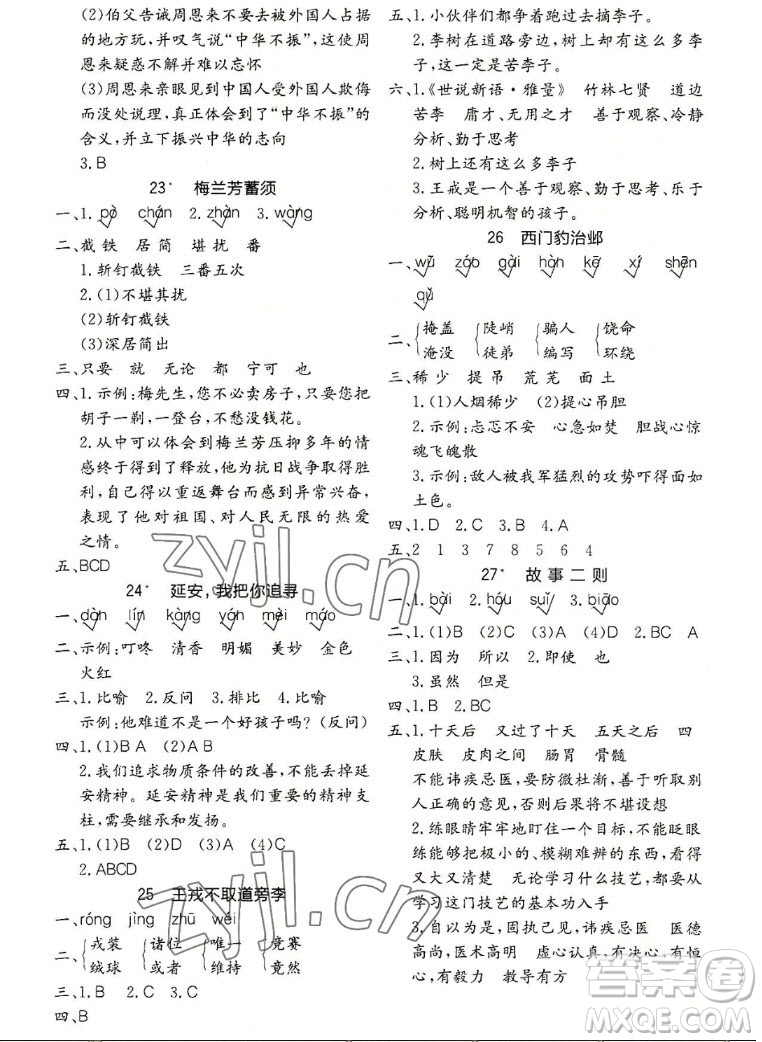 (2)伯父告诫周恩来不要去被外国人占据
的地方玩,并叹气说“中华不振”,这使周
恩来疑惑不解并难以忘怀
(3)周恩来亲眼见到中国人受外国人欺侮
而没处说理,真正体会到了“中华不振”的
含义,并立下振兴中华的志向
3.B
23* 梅兰芳蓄须
一、1.pò chán 2.zhàn 3.wàng
二、截 铁 居 简 堪 扰 番
1.斩钉截铁 三番五次
2.(1)不堪其扰
(2)斩钉截铁
(3)深居简出
三、只要 就 无论 都 宁可 也
四、1.示例:梅先生,您不必卖房子,只要您把
胡子一剃,一登台,不愁没钱花。
2.从中可以体会到梅兰芳压抑多年的情
感终于得到了释放,他为抗日战争取得胜
利,自己得以重返舞台而感到异常兴奋,
表现了他对祖国、对人民无限的热爱
之情。
五、BCD
24* 延安,我把你追寻
一、dàn lín kàng yán mèi máo
二、示例:叮咚 清香 明媚 美妙 金色
火红
三、1.比喻 2.反问 3.排比 4.比喻
示例:他难道不是一个好孩子吗?(反问)
四、1.(1)B A (2)A B
2.我们追求物质条件的改善,不能丢掉延
安精神。延安精神是我们重要的精神支
柱,需要继承和发扬。
五、1.(1)B (2)D (3)A (4)C
2.ABCD
25 王戎不取道旁李
一、róng jìng zhū wéi
二、戎装 诸位 唯一 竞赛
绒球 或者 维持 竟然
三、1.B 2.C 3.C
四、B
五、1.小伙伴们都争着跑过去摘李子。
2.李树在道路旁边,树上却有这么多李
子,这一定是苦李子。
六、1.《世说新语·雅量》 竹林七贤 道边
苦李 庸才、无用之才 善于观察、冷静
分析、勤于思考
2.树上还有这么多李子
3.王戎是一个善于观察、勤于思考、乐于
分析、聪明机智的孩子。
26 西门豹治邺
一、wū záo gài hàn kē xí shēn
qǔ
二、掩盖 陡峭 骗人 饶命
淹没 徒弟 编写 环绕
三、稀 少 提 吊 荒 芜 面 土
1.(1)人烟稀少 (2)提心吊胆
2.示例:忐忑不安 心急如焚 胆战心惊
魂飞魄散
3.示例:敌人被我军猛烈的攻势吓得面如
土色。
四、1.D 2.C 3.B 4.A
五、2 1 3 7 8 5 6 4
27* 故事二则
一、1.bài 2.hóu suǐ 3.biāo
二、1.(1)B (2)C (3)A (4)D 2.BC A
三、1.因为 所以 2.即使 也
3.虽然 但是
四、1.B 2.BC
五、1.十天后 又过了十天 五天之后 四
皮肤 皮肉之间 肠胃 骨髓
不能讳疾忌医,要防微杜渐,善于听取
别人正确的意见,否则后果将不堪设想
2.练眼睛牢牢地盯住一个目标,不能眨眼
能够把极小的、模糊难辨的东西,看得
又大又清楚 无论学习什么技艺,都要从
学习这门技艺的基本功入手
3.自以为是,固执己见,讳疾忌医 医德
高尚,医术高明 虚心认真,有决心,有恒
心,有毅力 教导有方
zyjl.cn
zyjl.cn
答案圈
MXQE.COM